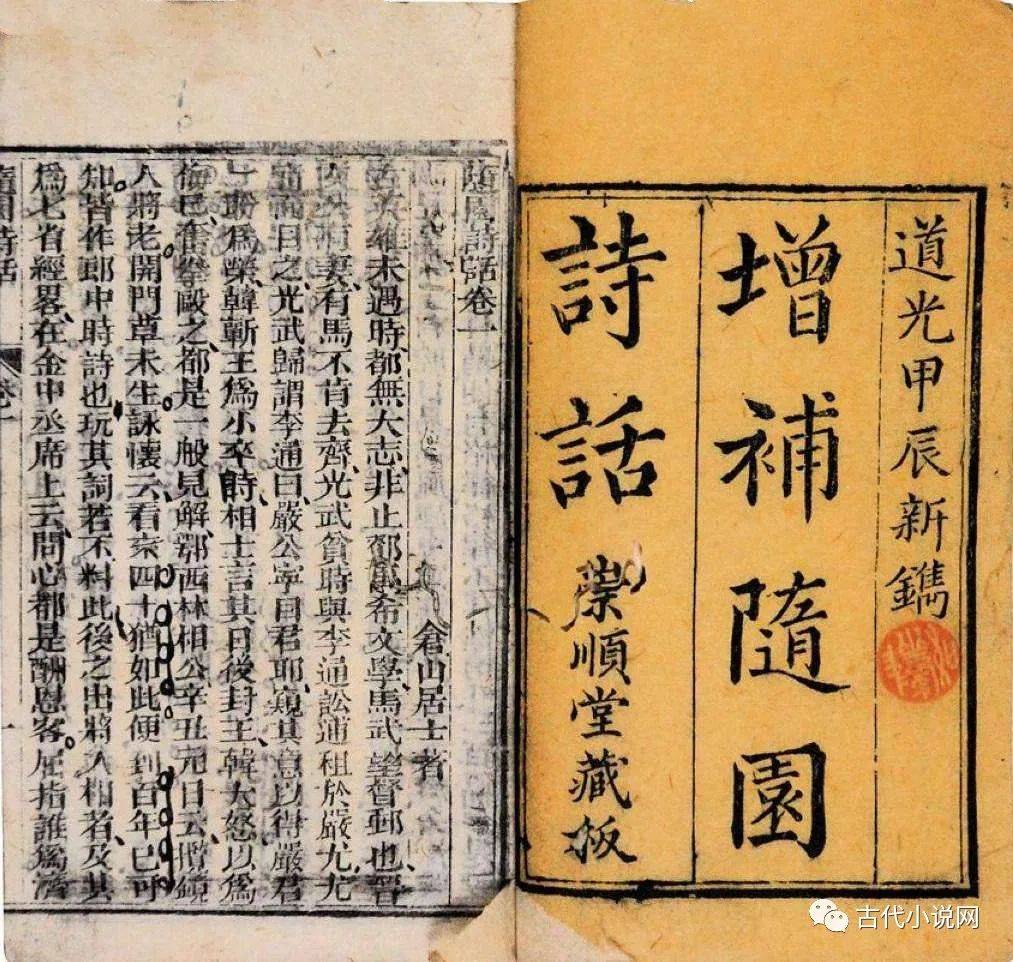 道光甲辰新鐫
增補隨園
詩話
崇順堂藏板
隨園詩話卷一
倉山居士著
英雄未遇時都無大志非止鄧禹希文學馬武望督郵也晉
有妻有馬不肯去齊光武貧時與李通訟逋租於嚴尤尤
奇而目之光武歸謂李通曰嚴公寧目君耶窺其意以得嚴君
一盼為榮韓蘄王為小卒時相士言其日後封王韓大怒以為
侮己奮拳毆之都是一般見解鄂西林相公辛丑元日云攬鏡
人將老開門草未生詠懷云看來四十猶如此便到百年已可
知皆作郎中時詩也玩其詞若不料此後之出將入相者及其
為七省經畧在金中丞席上云問心都是酬恩客屈指誰為濟
隨園詩話 卷一 一
古代小说网